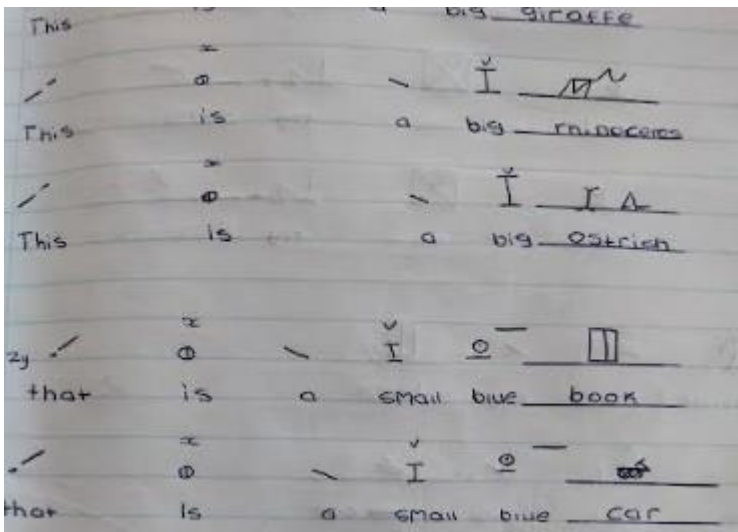 This is a big giraffe
This is a big rhinoceres
This is a big ostrich
zy
that is a small blue book
that is a small blue car